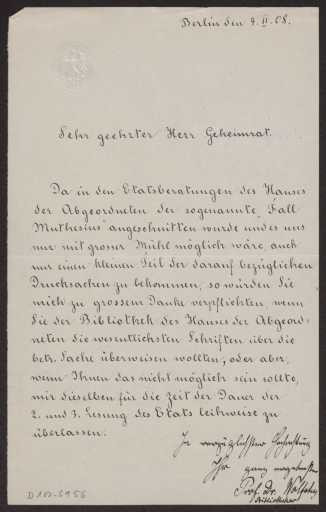 Berlin den 9. II. 08.
Sehr geehrter Herr Geheimrat.
Da in den Etatsberatungen des Hauses
der Abgeordneten der sogenannte „Fall
Muthesius" angeschnitten wurde und es uns
nur mit grosser Mühe möglich wäre, auch
nur einen kleinen Teil der darauf bezüglichen
Drucksachen zu bekommen, so würden Sie
mich zu grossem Danke verpflichten, wenn
Sie der Bibliothek des Hauses der Abgeord-
neten die wesentlichsten Schriften über die
betr. Sache überweisen wollten, oder aber,
wenn Ihnen das nicht möglich sein sollte,
mir dieselben für die Zeit der Dauer der
2. und 3. Lesung des Etats leihweise zu
überlassen.
In vorzüglichster Hochachtung
Ihr ganz ergebenster
Prof. Dr. Wolfstieg
Bibliothekar
D 102-5956